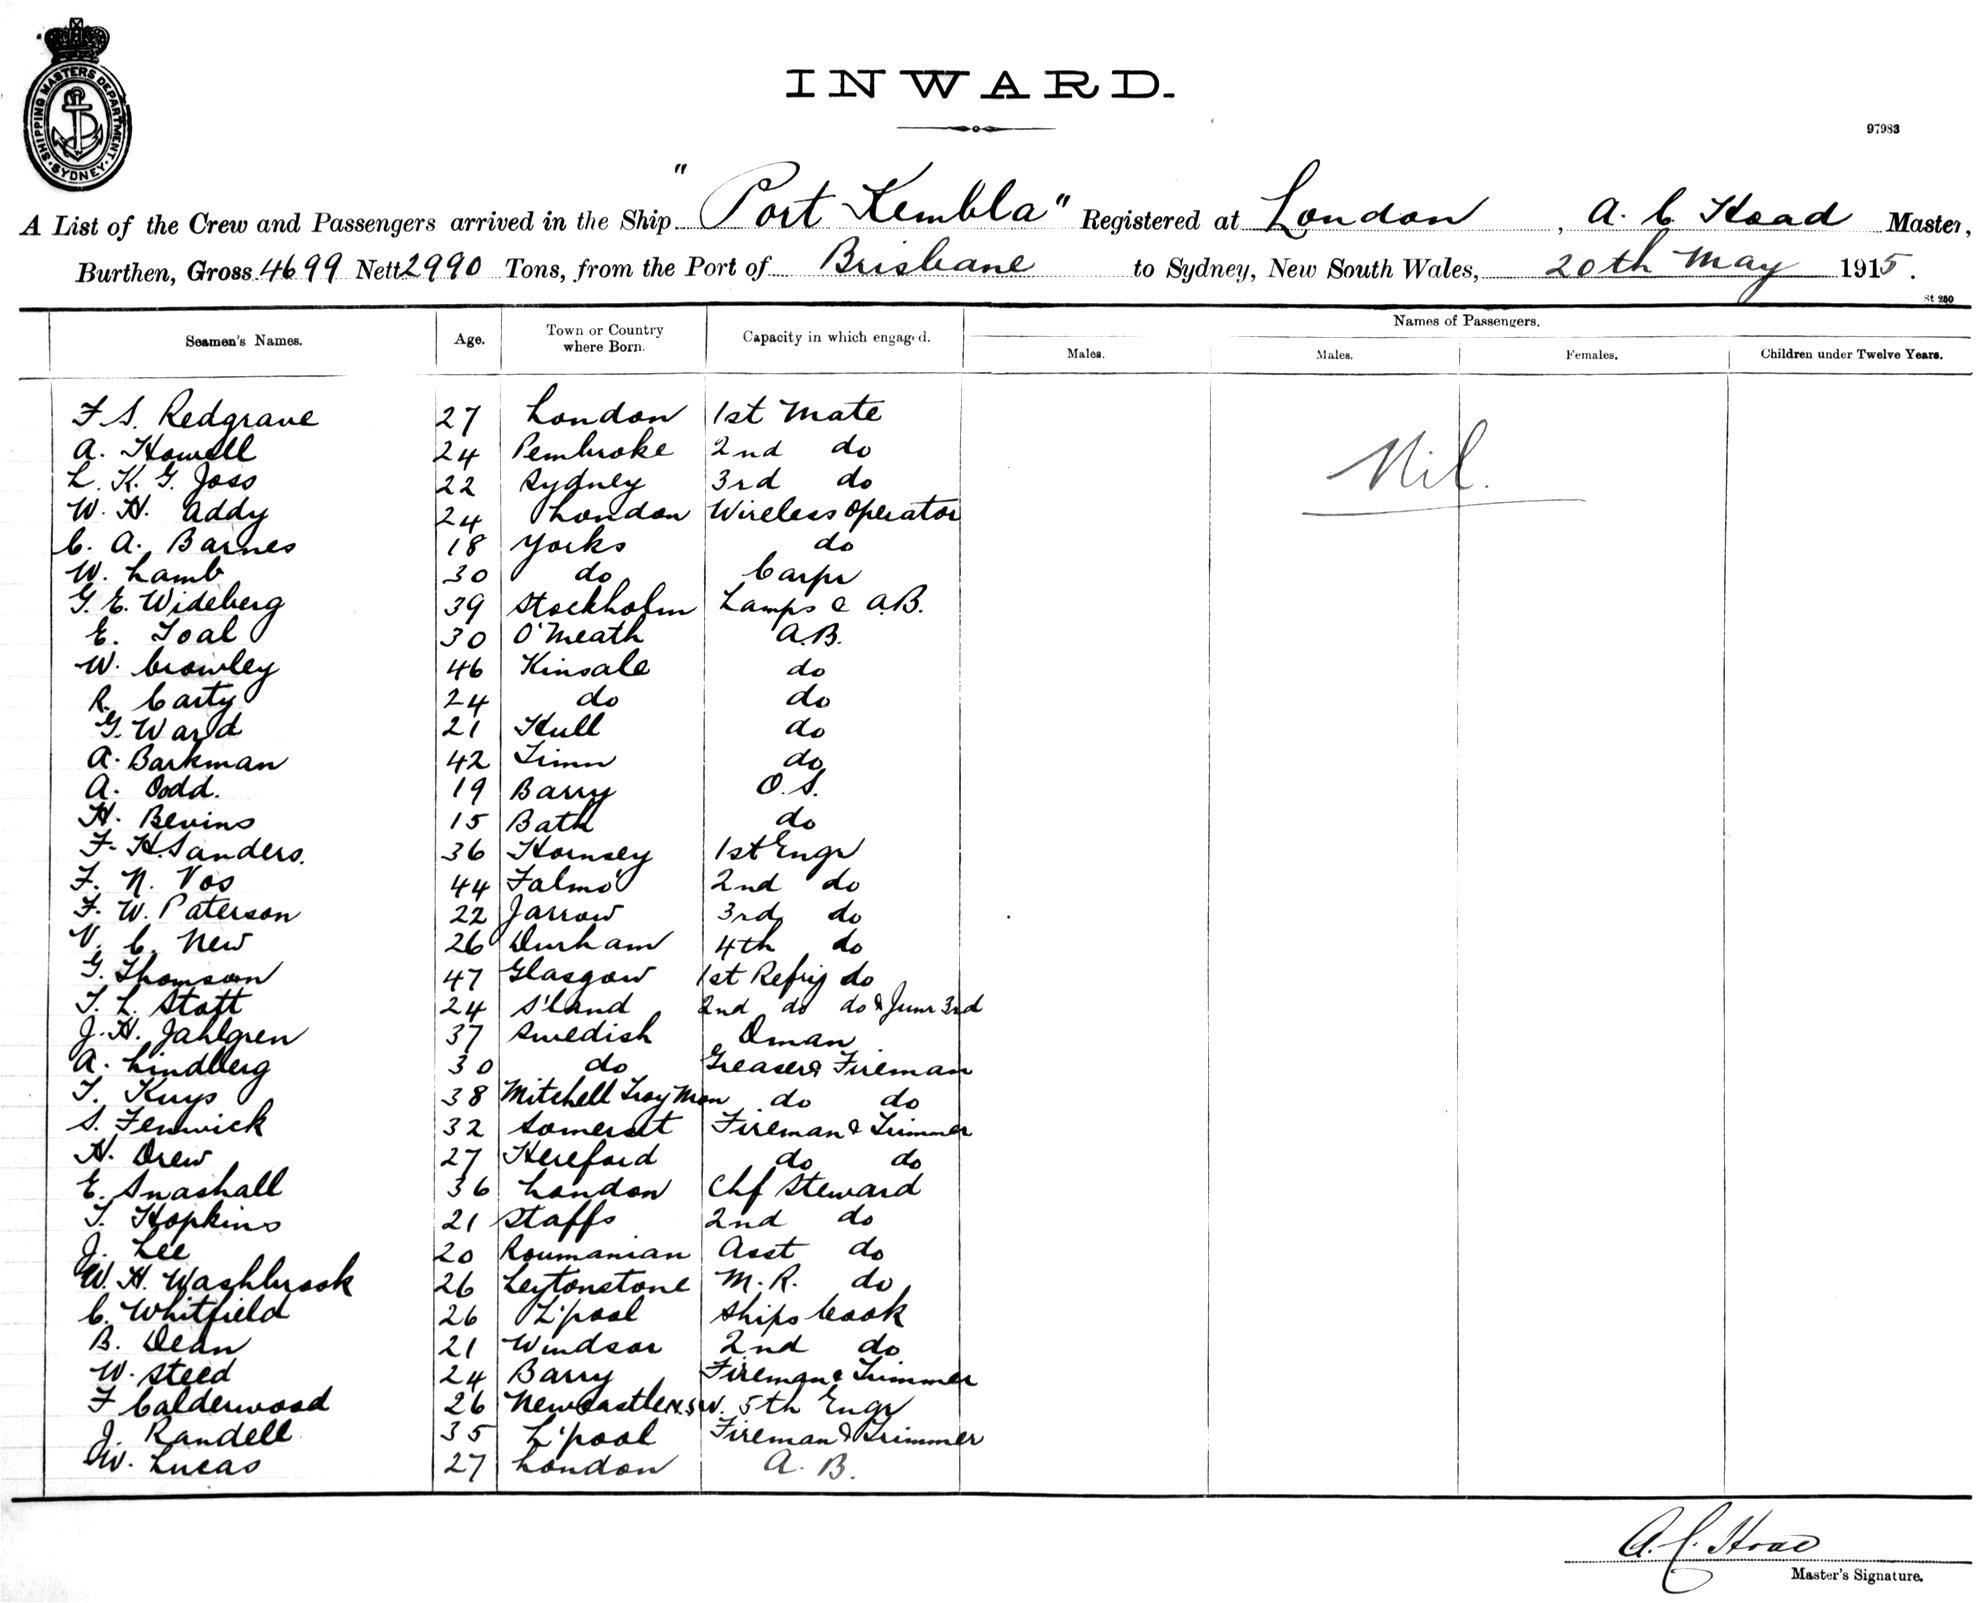 SHIPPING MASTERS DEPARTMENT. SYDNEY
INWARD.
97983
A List of the Crew and Passengers arrived in the Ship "Port Kembla" Registered at London, A. C. Hoad Master,
Burthen, Gross 4699 Nett 2990 Tons, from the Port of Brisbane to Sydney, New South Wales, 20th May 1915.
St 250
Seamen's Names. Age. Town or Country where Born. Capacity in which engaged. Names of Passengers.
Males. Males. Females. Children under Twelve Years.
Nil.
F. S. Redgrave 27 London 1st Mate
A. Howell 24 Pembroke 2nd do
L. K. G. Joss 22 Sydney 3rd do
W. H. Addy 24 London Wireless Operator
C. A. Barnes 18 Yorks do
W. Lamb 30 do Carpr
G. E. Wideberg 39 Stockholm Lamps & A.B.
E. Toal 30 O'Meath A.B.
W. Crowley 46 Kinsale do
R. Carty 24 do do
G. Ward 21 Hull do
A. Barkman 42 do
A. Dodd. 19 Barry O.S.
H. Bevins 15 Bath do
F. H. Sanders. 36 Hornsey 1st Engr
F. N. Vos 44 Falmo' 2nd do
F. W. Paterson 22 Jarrow 3rd do
V. C. New 26 Durham 4th do
G. Thomson 47 Glasgow 1st Refrig do
T. L. Stott 24 S'land 2nd do do & Junr 3rd
J. H. Jahlgren 37 Swedish Dman
A. Lindberg 30 do Greaser & Fireman
T. Kuys 38 Mitchell Troy Mon do do
S. Fenwick 32 Somerset Fireman & Trimmer
H. Drew 27 Hereford do do
E. Snashall 36 London Chf Steward
T. Hopkins 21 Staffs 2nd do
J. Lee 20 Roumanian Asst do
W. H. Washbrook 26 Leytonstone M.R. do
C. Whitfield 26 L'pool Ships Cook
B. Dean 21 Windsor 2nd do
W. Steed 24 Barry Fireman & Trimmer
F Calderwood 26 Newcastle N.S.W. 5th Engr
J. Randell 35 L'pool Fireman & Trimmer
W. Lucas 27 London A. B.
A. C. Hoad
Master's Signature.